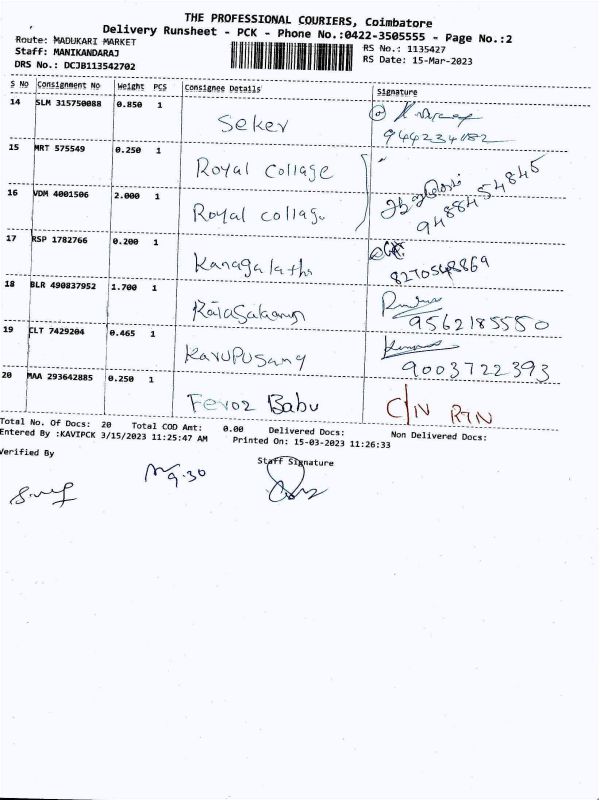 THE PROFESSIONAL COURIERS, Coimbatore
Delivery Runsheet - PCK - Phone No.:0422-3505555 - Page No.:2
Route: MADUKARI MARKET
RS No.: 1135427
Staff: MANIKANDARAJ
RS Date: 15-Mar-2023
DRS No.: DCJB113542702
S NO Consignment No Weight PCS Consignee Details Signature
14 SLM 315750088 0.850 1 Seker
9442234182
15 MRT 575549 0.250 1 Royal Collage
16 VDM 4001506 2.000 1 Royal collage
9488454845
17 RSP 1782766 0.200 1 Kanagalatha
8270548869
18 BLR 490837952 1.700 1
9562185550
19 CLT 7429204 0.465 1 Karupusamy
9003722393
20 MAA 293642885 0.250 1 Feroz Babu C/N RTN
Total No. Of Docs: 20 Total COD Amt: 0.00 Delivered Docs: Non Delivered Docs:
Entered By :KAVIPCK 3/15/2023 11:25:47 AM Printed On: 15-03-2023 11:26:33
Verified By Staff Signature
9.30